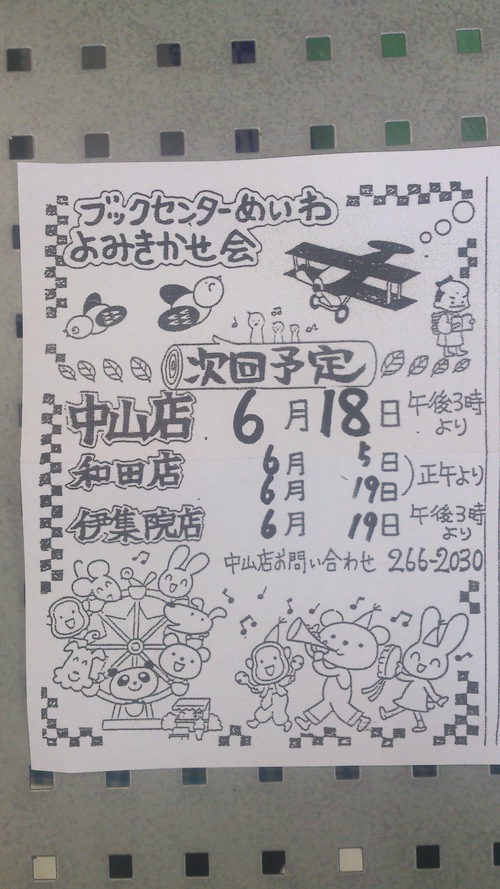 ブックセンターめいわ
よみきかせ会
次回予定
中山店 6月18日 午後3時より
和田店 6月5日
6月19日 正午より
伊集院店 6月19日 午後3時より
中山店お問い合わせ 266-2030